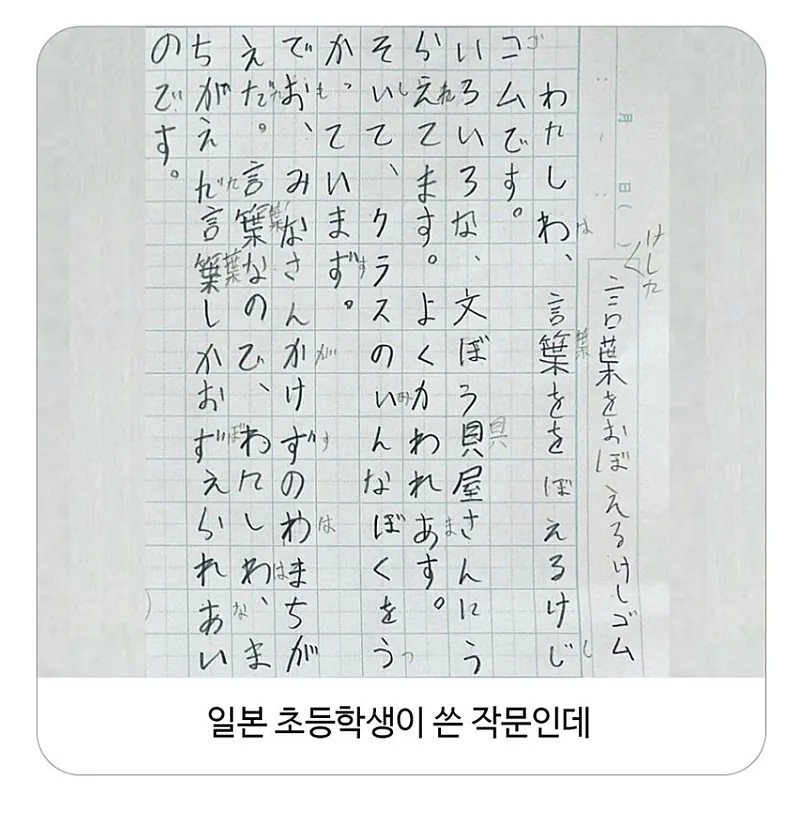 月 日( )
けした
言葉をおぼえるけしゴム
わたしわ、言葉ををぼえるけじ
コムです。
いろいろな、文ぼう貝屋さんにう
らえてます。よくかわれあす。
そいて、クラスのいんなぼくをう
か、ていまず。
でお、みなさんかけずのわまちが
えだ。言葉なので、わたしわ、ま
ちがえだ言葉しかおずえられあい
のです。
일본 초등학생이 쓴 작문인데